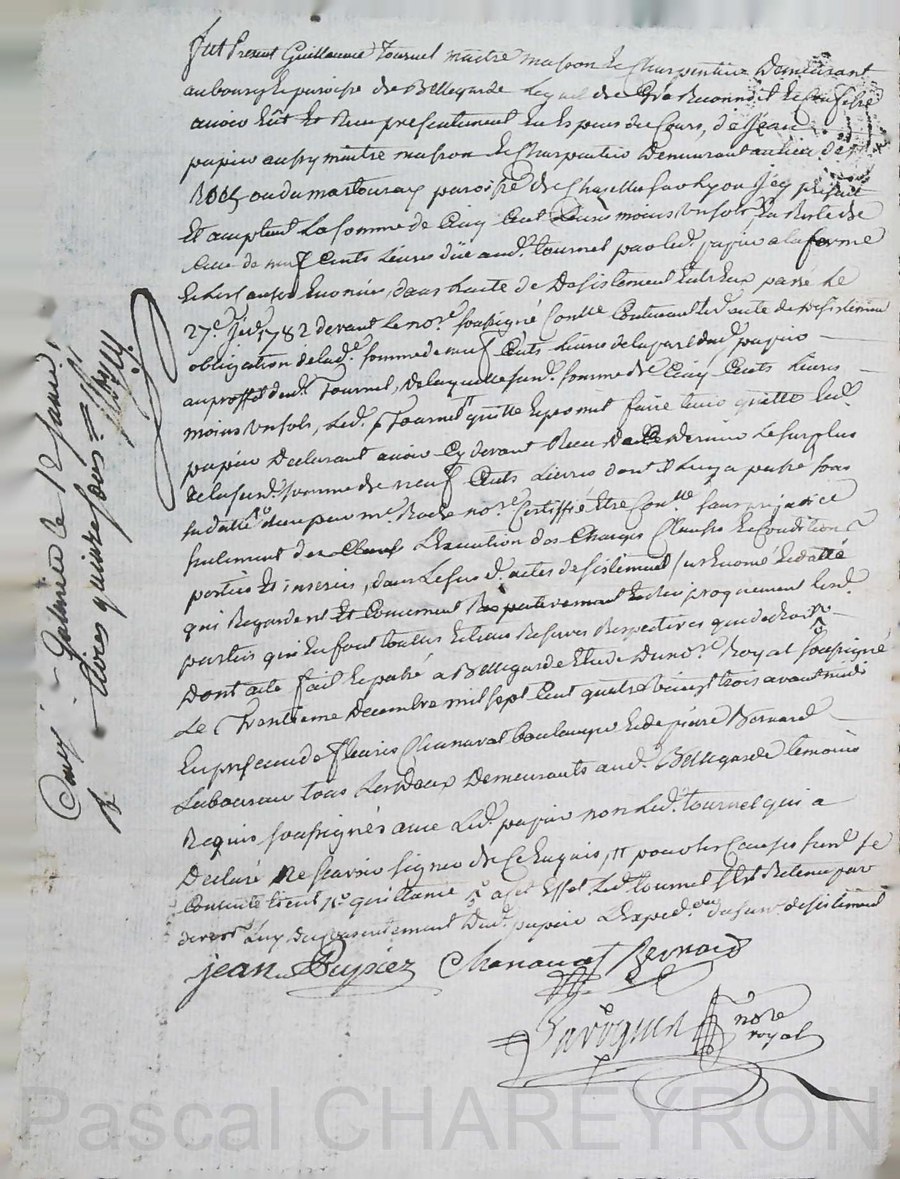 Fut Present Guillaume Tournel maitre masson Et Charpentier Demeurant
au bourg Et paroisse de Bellegarde Lequel de Gré a Reconnu Et Confessé
avoir Eüt Et Reçu presentement En Espèces du Cours, de Jean
papier aussy maitre masson Et Charpentier Demeurant au lieu de
paroisse de Chazelles sur Lyon Icy présent
Et acceptant La somme de Cinq Cent Livres moins un sols, En Reste de
Celle de neuf Cents Livres düe aud. tournel par led. papier a la forme
dans l'acte de Desistement Entr'Eux passé Le
27e. 1782 devant Le nore. soussigné Contlé Contenant led. acte de desistement
obligation de lad. somme de neuf Cents Livres de la part dud. papier
au proffit dud. Tournel, de laquelle susd. somme de Cinq Cents Livres
moins un sols, Led. Tournel quitte Et promet faire tenir quitte led.
papier Declarant avoir Cy devant Reçu De Ce dernier Le surplus
de la susd. somme de neuf Cents Livres dont Il Luy a passé sous
par me. Roche nore. Certiffié Etre Contlé sans préjudice
seulement de L'Execution des Charges Clauses Et Conditions
portées Et inserées, dans Le susd. acte de desistement sus Enoncé Et datté
qui Regardent Et Concernent Respectivement Et Reciproquement Lesd.
parties qui En font toutes Et Leurs Reserves Respectives que de droit
Dont acte fait Et passé a Bellegarde Etude Du nore. Royal soussigné
Le Trentième Decembre mil sept Cent quatre vingt trois avant midi
En presence de Fleury Chanavat boulanger Et de pierre Bernard
Laboureur tous Les Deux Demeurants aud. Bellegarde temoins
Requis soussignés avec Led. papier non Led. tournel qui a
Declaré Ne sçavoir signer de Ce Enquis, pour les Causes susd. Se
quittance a Cet Effet Led. tournel s'Est Retenu par
devers Luy Du Consentement Dud. papier L'Expedon. du susd. desistement
jean Papier Chanavat Bernard
nore
royal
Conlé a St Galmier le 12 janvier
R. livres quinze sous
Pascal CHAREYRON